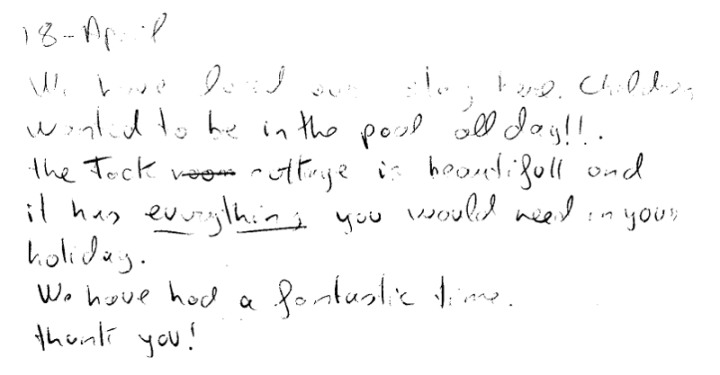 18-April
We have loved our stay here. Children
wanted to be in the pool all day!!.
the Tack room cottage is beautifull and
it has everything you would need in your
holiday.
We have had a fantastic time.
thank you!